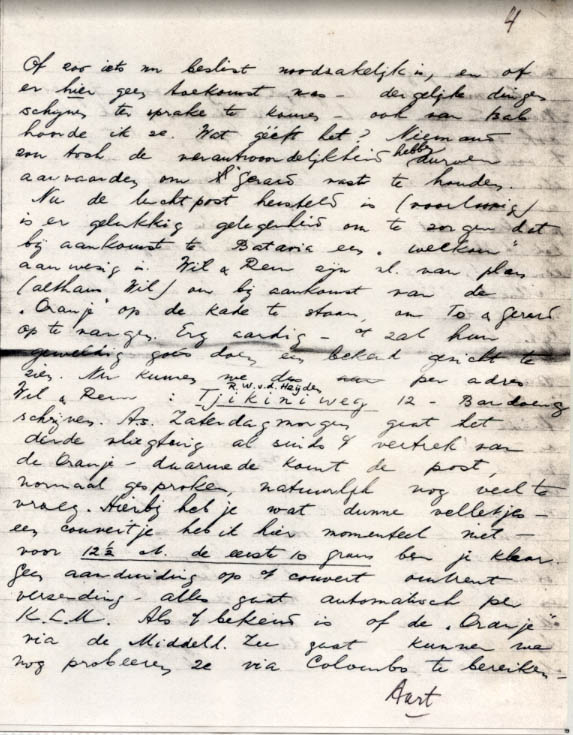 4
Of zoo iets nu beslist noodzakelijk is, en of
er hier geen toekomst was - dergelijke dingen
schijnen ter sprake te komen - ook van Bab
hoorde ik ze. Wat gééft het? Niemand
zou toch de verantwoordelijkheid hebben durven
aanvaarden om Gerard vast te houden.
Nu de luchtpost hersteld is (voorloopig)
is er gelukkig gelegenheid om te zorgen dat
bij aankomst te Batavia een "welkom"
aanwezig is. Wil & Rem zijn nl. van plan
(althans Wil) om bij aankomst van de
"Oranje" op de kade te staan, om To & Gerard
op te vangen. Erg aardig - 't zal hun
geweldig goed doen een bekend gezicht te
zien. Nu kunnen we per adres
Wil & Rem : R.W.v.d. Heijden
Tjikiniweg 12 - Bandoeng
schrijven. A.s. Zaterdagmorgen gaat het
derde vliegtuig al sinds 't vertrek van
de Oranje - daarmede komt de post,
normaal gesproken, natuurlijk nog veel te
vroeg. Hierbij heb je wat dunne velletjes -
een couvertje heb ik hier momenteel niet -
voor 12½ ct. de eerste 10 gram ben je klaar.
Geen aanduiding op 't couvert omtrent
verzending - alles gaat automatisch per
K.L.M. Als 't bekend is of de "Oranje"
via de Middell. Zee gaat kunnen we
nog probeeren ze via Colombo te bereiken -
Aart